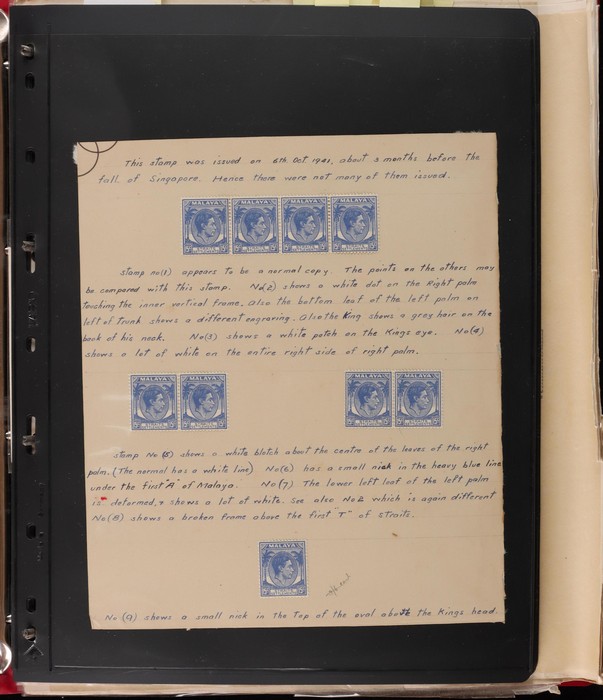 This stamp was issued on 6th Oct 1941, about 3 months before the
fall of Singapore. Hence there were not many of them issued.
MALAYA MALAYA MALAYA MALAYA
stamp no(1) appears to be a normal copy. The points on the others may
be compared with this stamp. No(2) shows a white dot on the Right palm
touching the inner vertical frame. Also the bottom leaf of the left palm on
left of Trunk shows a different engraving. Also the King shows a gray hair on the
back of his neck. No(3) shows a white patch on the Kings eye. No(4)
shows a lot of white on the entire right side of right palm.
MALAYA MALAYA MALAYA MALAYA
stamp No(5) shows a white blotch about the centre of the leaves of the right
palm. (The normal has a white line) No(6) has a small nick in the heavy blue line
under the first "A" of Malaya. No(7) The lower left leaf of the left palm
is deformed, & shows a lot of white. See also No2 which is again different
No(8) shows a broken frame above the first "T" of Straits.
MALAYA
No(9) shows a small nick in the Top of the oval above the Kings head.